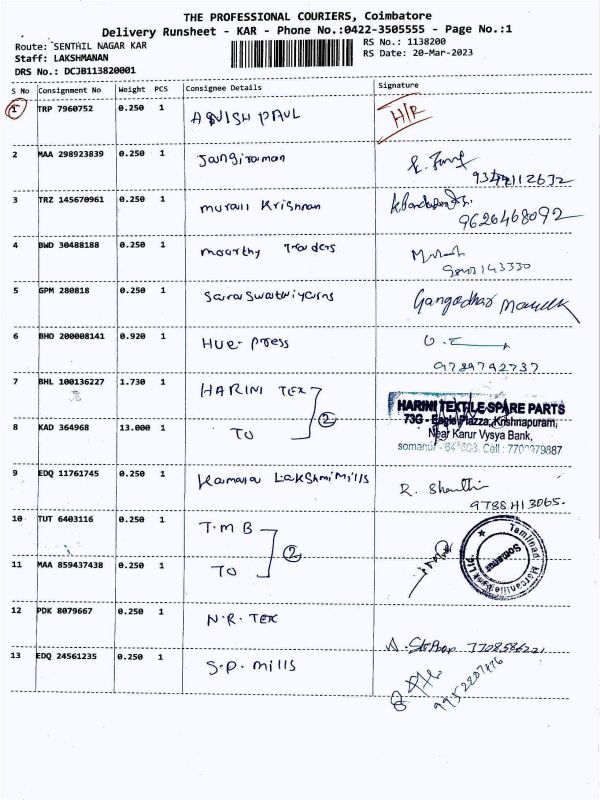 THE PROFESSIONAL COURIERS, Coimbatore
Delivery Runsheet - KAR - Phone No.:0422-3505555 - Page No.:1
Route: SENTHIL NAGAR KAR
RS No.: 1138200
Staff: LAKSHMANAN
RS Date: 20-Mar-2023
DRS No.: DCJB113820001
S No Consignment No Weight PCS Consignee Details Signature
1 TRP 7960752 0.250 1 PAUL H/R
2 MAA 298923839 0.250 1 Jangiraman
3 TRZ 145670961 0.250 1 murali Krishnan
9626468092
4 BWD 30488188 0.250 1 moorthy Traders
9843143330
5 GPM 280818 0.250 1 Saraswathiyarns Gangadhar
6 BHO 200008141 0.920 1 Hue Press
9789792737
7 BHL 100136227 1.730 1 HARINI TEX
HARINI TEXTILE SPARE PARTS
73G - Eagle Plazza, Krishnapuram,
8 KAD 364968 13.000 1 TO 2
Near Karur Vysya Bank,
somanur
9 EDQ 11761745 0.250 1 Kamala LakShmi Mills R. Shanthi
9788413065.
10 TUT 6403116 0.250 1 T.M.B
Tamilnad Mercantile Bank Ltd.
Somanur
11 MAA 859437438 0.250 1 TO 2
12 PDK 8079667 0.250 1 N.R. TEX
13 EDQ 24561235 0.250 1 S.P. Mills
9952207476